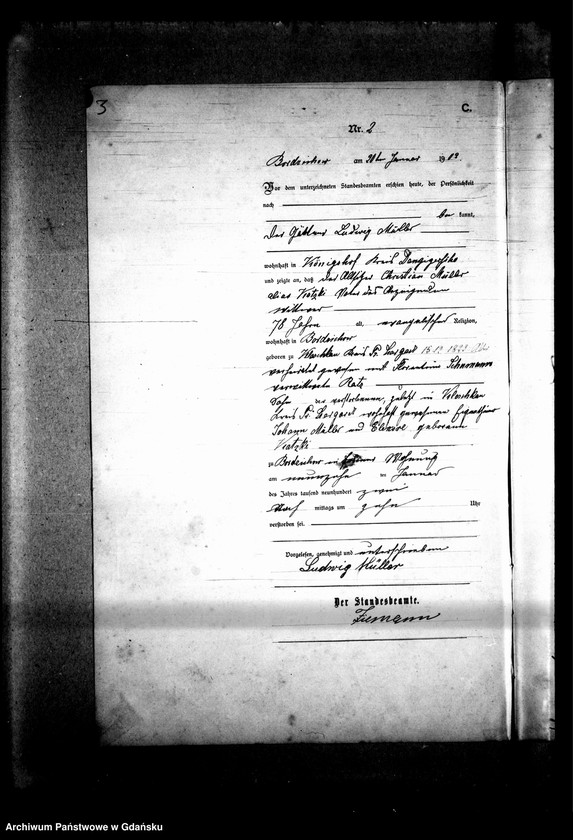 3
C.
Nr. 2
Bordzichow am 20ten Januar 1902
Vor dem unterzeichneten Standesbeamten erschien heute, der Persönlichkeit
nach
be kannt,
Der Ludwig Müller
wohnhaft in Königshof Kreis
und zeigte an, daß der Altsitzer Christian Müller
alias Kratzki Vater des Anzeigenden
Wittwer
78 Jahre alt, evangelischer Religion,
wohnhaft in Bordzichow
geboren zu Kreis Pr. Stargard
verheiratet gewesen mit Florentine
verwittwete Ratz
Sohn der verstorbenen, zuletzt in
Kreis Pr. Stargard wohnhaft gewesenen
Johann Müller und geborene
Kratzki
zu Bordzichow in Wohnung
am neunzehn ten Januar
des Jahres tausend neunhundert zwei
Nach mittags um zehn Uhr
verstorben sei.
Vorgelesen, genehmigt und unterschrieben
Ludwig Müller
Der Standesbeamte.
Archiwum Państwowe w Gdańsku